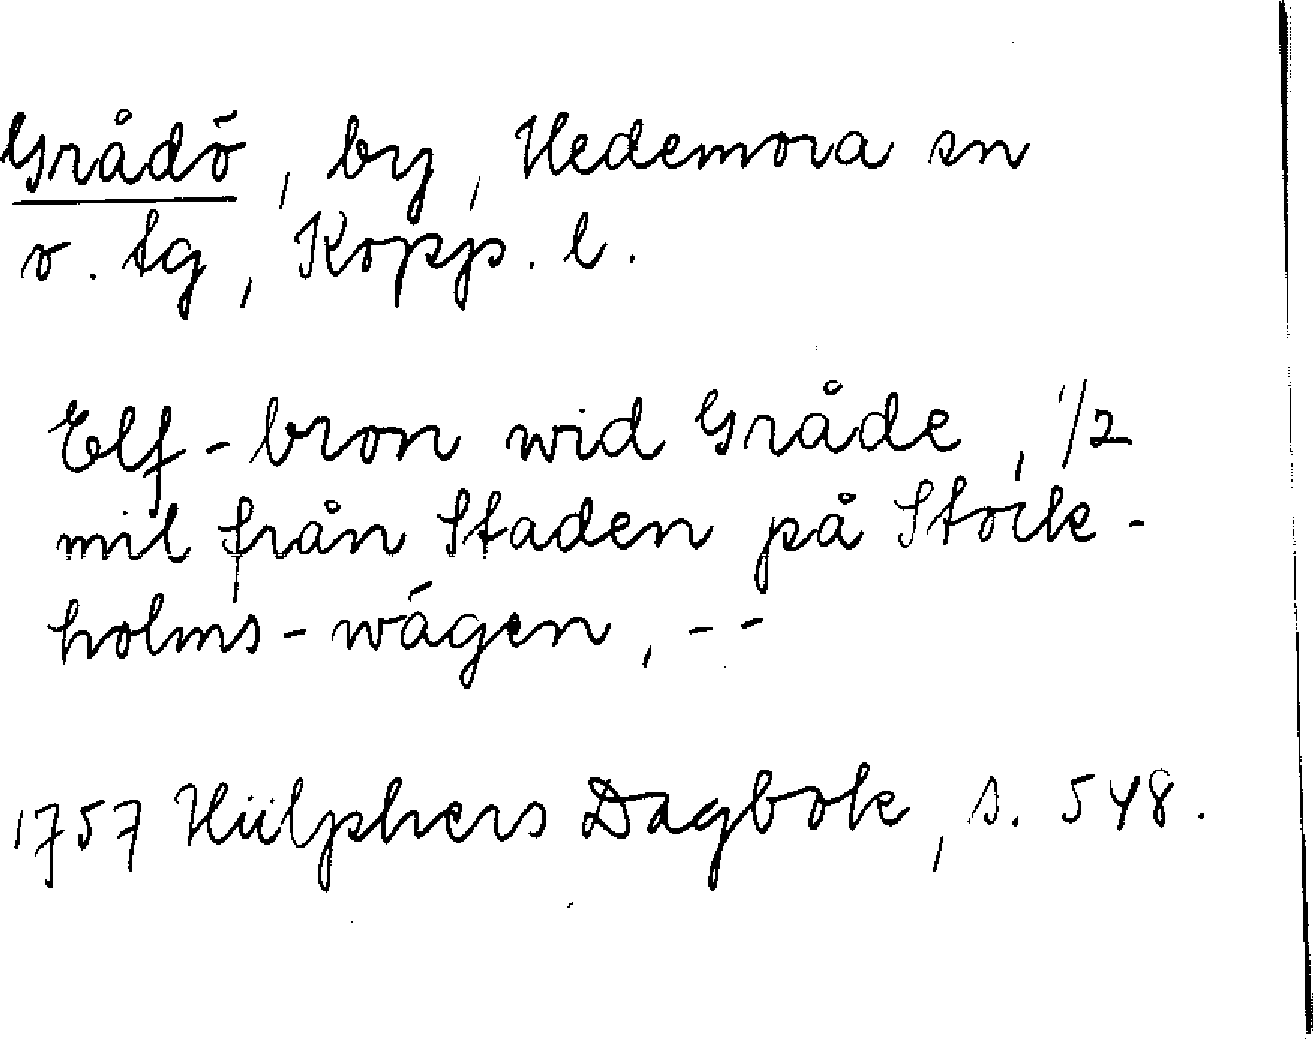 Grådö, by, Hedemora sn
o. tg, Kopp. l.
Elf-bron wid Gråde, 1/2
mil från Staden på Stock-
holms-wägen, --
1757 Hülphers Dagbok, s. 548.